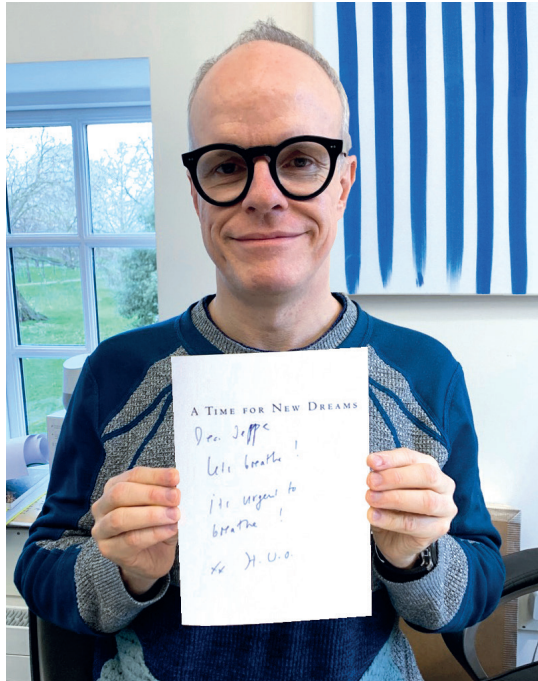 A TIME FOR NEW DREAMS
Dear Jeppe
let's breathe !
it's urgent to
breathe !
xx H.U.O.